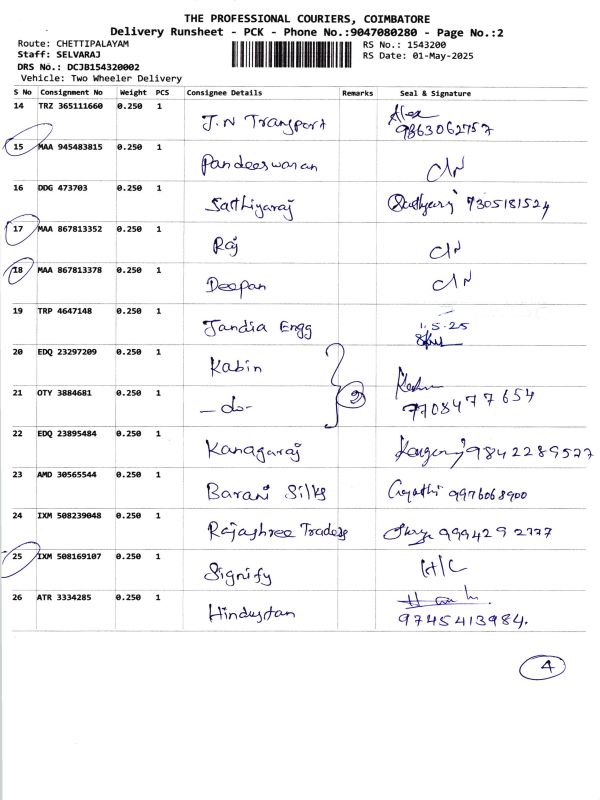 THE PROFESSIONAL COURIERS, COIMBATORE
Delivery Runsheet - PCK - Phone No.:9047080280 - Page No.:2
Route: CHETTIPALAYAM RS No.: 1543200
Staff: SELVARAJ RS Date: 01-May-2025
DRS No.: DCJB154320002
Vehicle: Two Wheeler Delivery
S No Consignment No Weight PCS Consignee Details Remarks Seal & Signature
14 TRZ 365111660 0.250 1 J.N Transport Alex
9863062757
15 MAA 945483815 0.250 1 Pandeeswaran C/N
16 DDG 473703 0.250 1 Sathiyaraj 7305181524
17 MAA 867813352 0.250 1 Raj C/N
18 MAA 867813378 0.250 1 Deepan C/N
19 TRP 4647148 0.250 1 Jandia Engg 1.5.25
20 EDQ 23297209 0.250 1 Kabin
21 OTY 3884681 0.250 1 -do- 2 7708477654
22 EDQ 23895484 0.250 1 Kanagaraj 9842289577
23 AMD 30565544 0.250 1 Barani Silks Gayathri 9976068900
24 IXM 508239048 0.250 1 Rajashree Traders 9994292777
25 IXM 508169107 0.250 1 Signify H/C
26 ATR 3334285 0.250 1 Hindustan
9745413984.
4